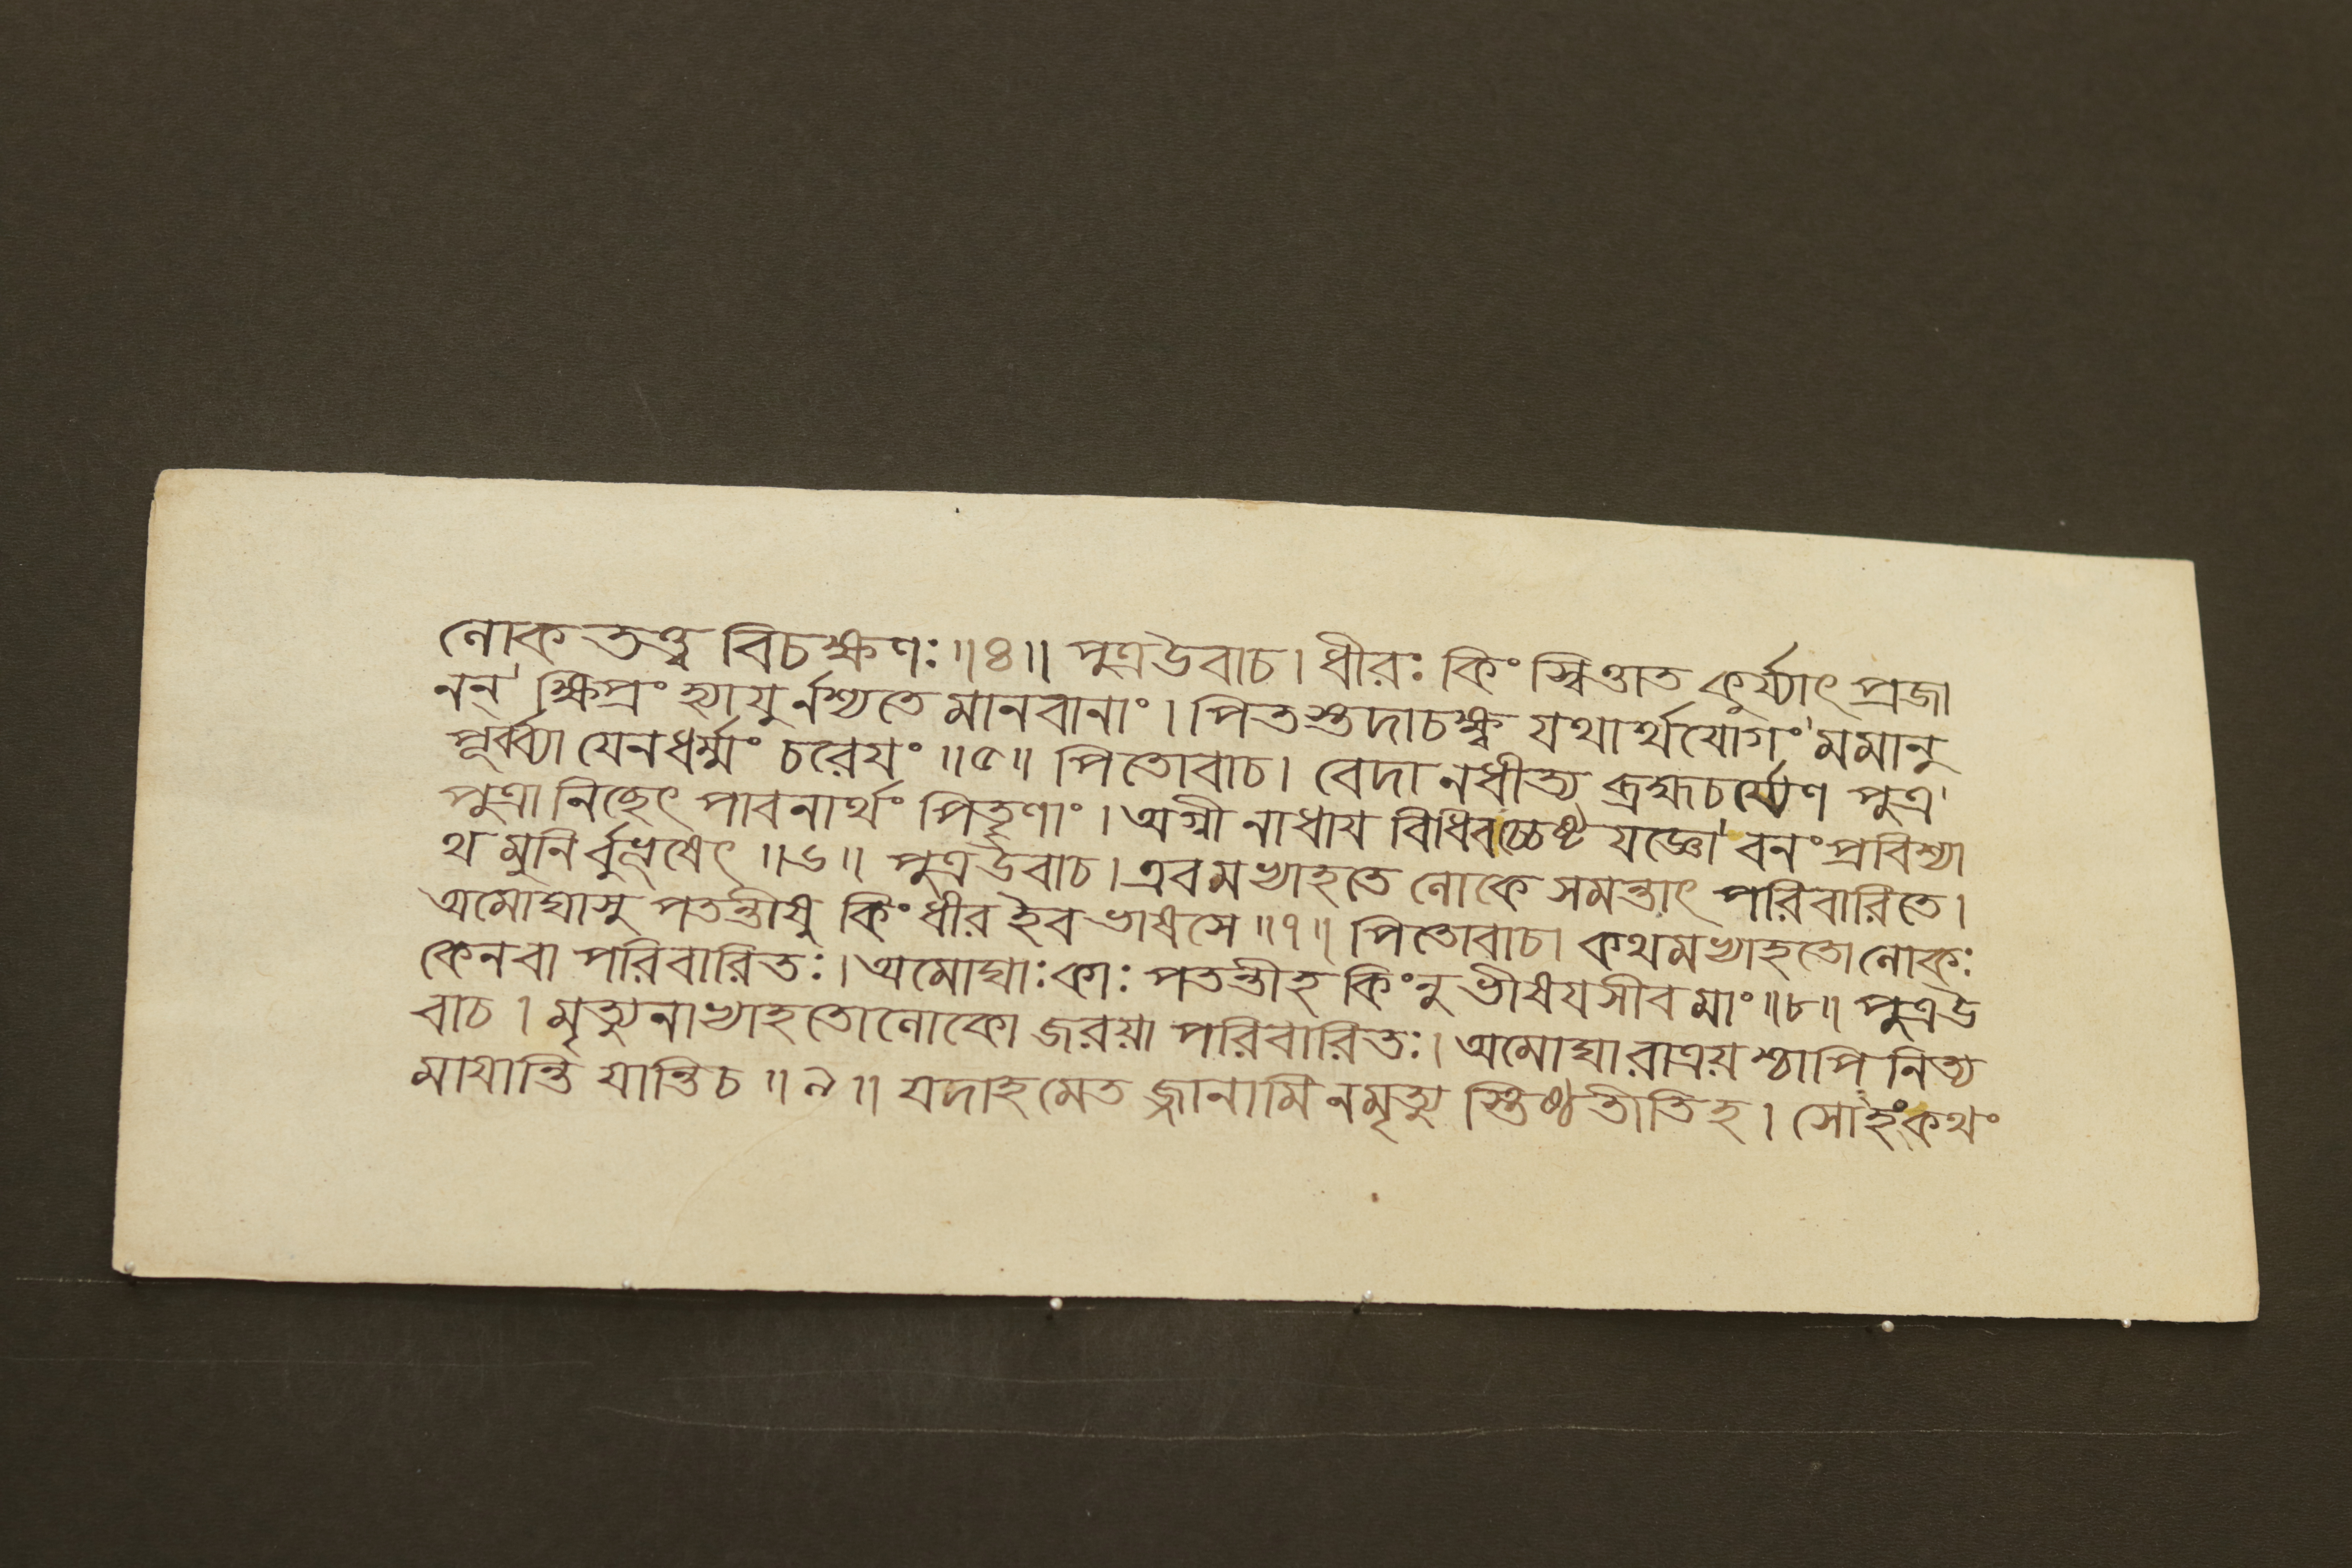 লোক তত্ত্ব বিচক্ষণঃ ॥৪॥ পুত্রউবাচ। ধীরঃ কিং স্বিত্তাত কুর্য্যাৎ প্রজা
নন্ ক্ষিপ্রং হ্যাযুর্নশ্যতে মানবানাং। পিতস্তদাচক্ষ্ব যথার্থযোগং মমানু
পূর্ব্ব্যা যেনধর্ম্মং চরেযং ॥৫॥ পিতোবাচ। বেদানধীত্য ব্রহ্মচর্য্যেণ পুত্র
পুত্রানিচ্ছেৎ পাবনার্থং পিতৄণাং। অগ্নীনাধায বিধিবচ্চেষ্ট যজ্ঞো বনং প্রবিশ্যা
থ মুনির্বুভূষেৎ ॥৬॥ পুত্রউবাচ। এবমভ্যাহতে লোকে সমন্তাৎ পরিবারিতে।
অমোঘাসু পতন্তীষু কিং ধীর ইব ভাষসে ॥৭॥ পিতোবাচ। কথমভ্যাহতো লোকঃ
কেনবা পরিবারিতঃ। অমোঘাঃ কাঃ পতন্তীহ কিংনু ভীষযসীব মাং ॥৮॥ পুত্রউ
বাচ। মৃত্যুনাভ্যাহতো লোকো জরয়া পরিবারিতঃ। অমোঘা রাত্রয়শ্চাপি নিত্য
মাযান্তি যান্তিচ ॥৯॥ যদাহমেত জ্জানামি নমৃত্যু স্তিষ্ঠতীতিহ। সোহংকথং